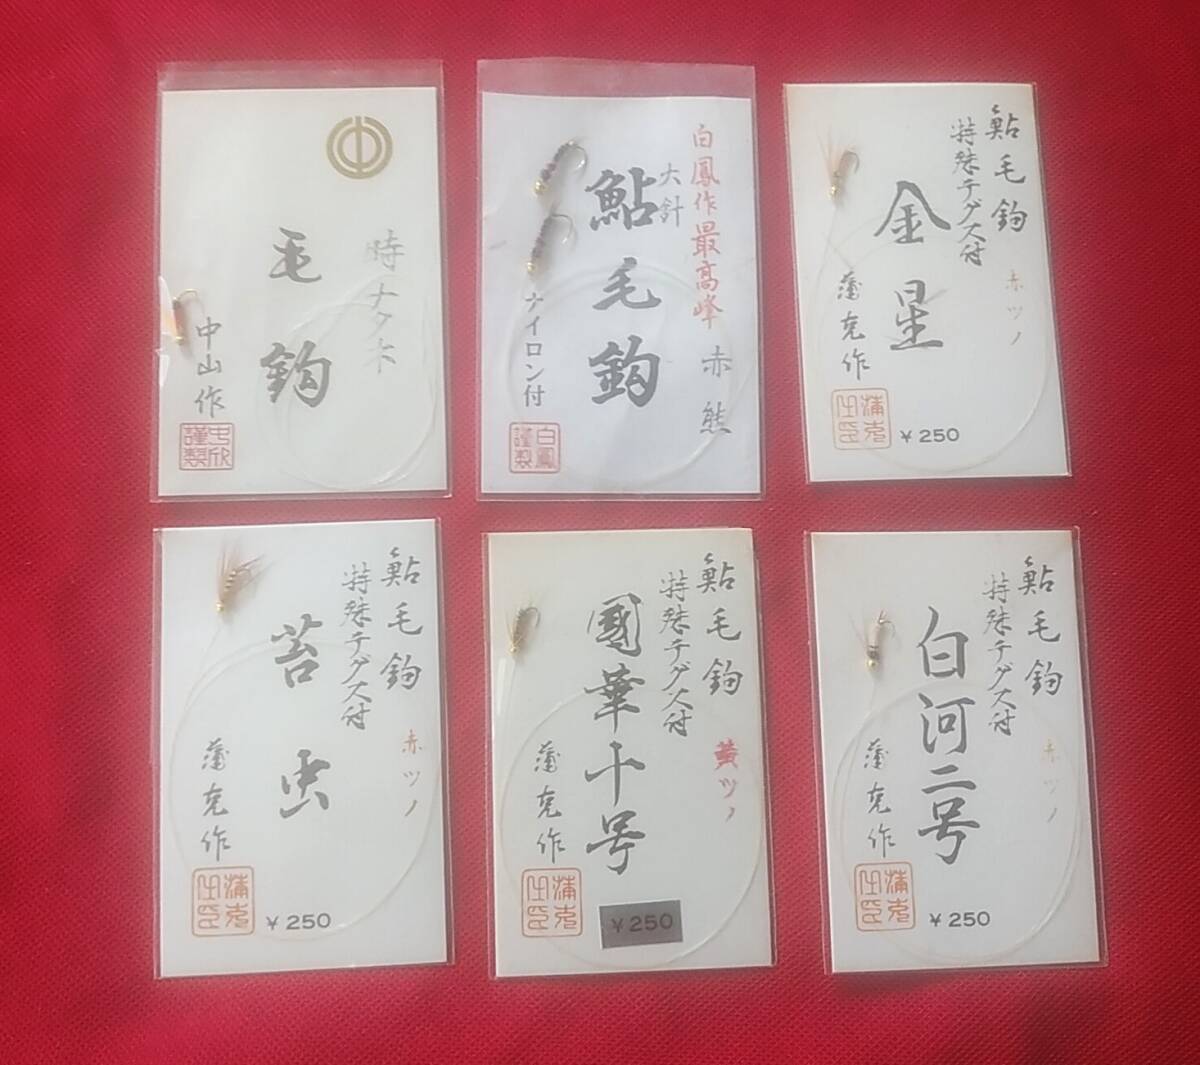 毛鈎
中山作
謹製
白鳳作最高峰
赤熊
大針
鮎毛鈎
ナイロン付
白鳳
謹製
鮎毛鈎
特殊テグス付
赤ツノ
金星
蒲克作
¥250
鮎毛鈎
特殊テグス付
赤ツノ
苔虫
蒲克作
¥250
鮎毛鈎
特殊テグス付
黄ツノ
國華十号
蒲克作
¥250
鮎毛鈎
特殊テグス付
赤ツノ
白河二号
蒲克作
¥250